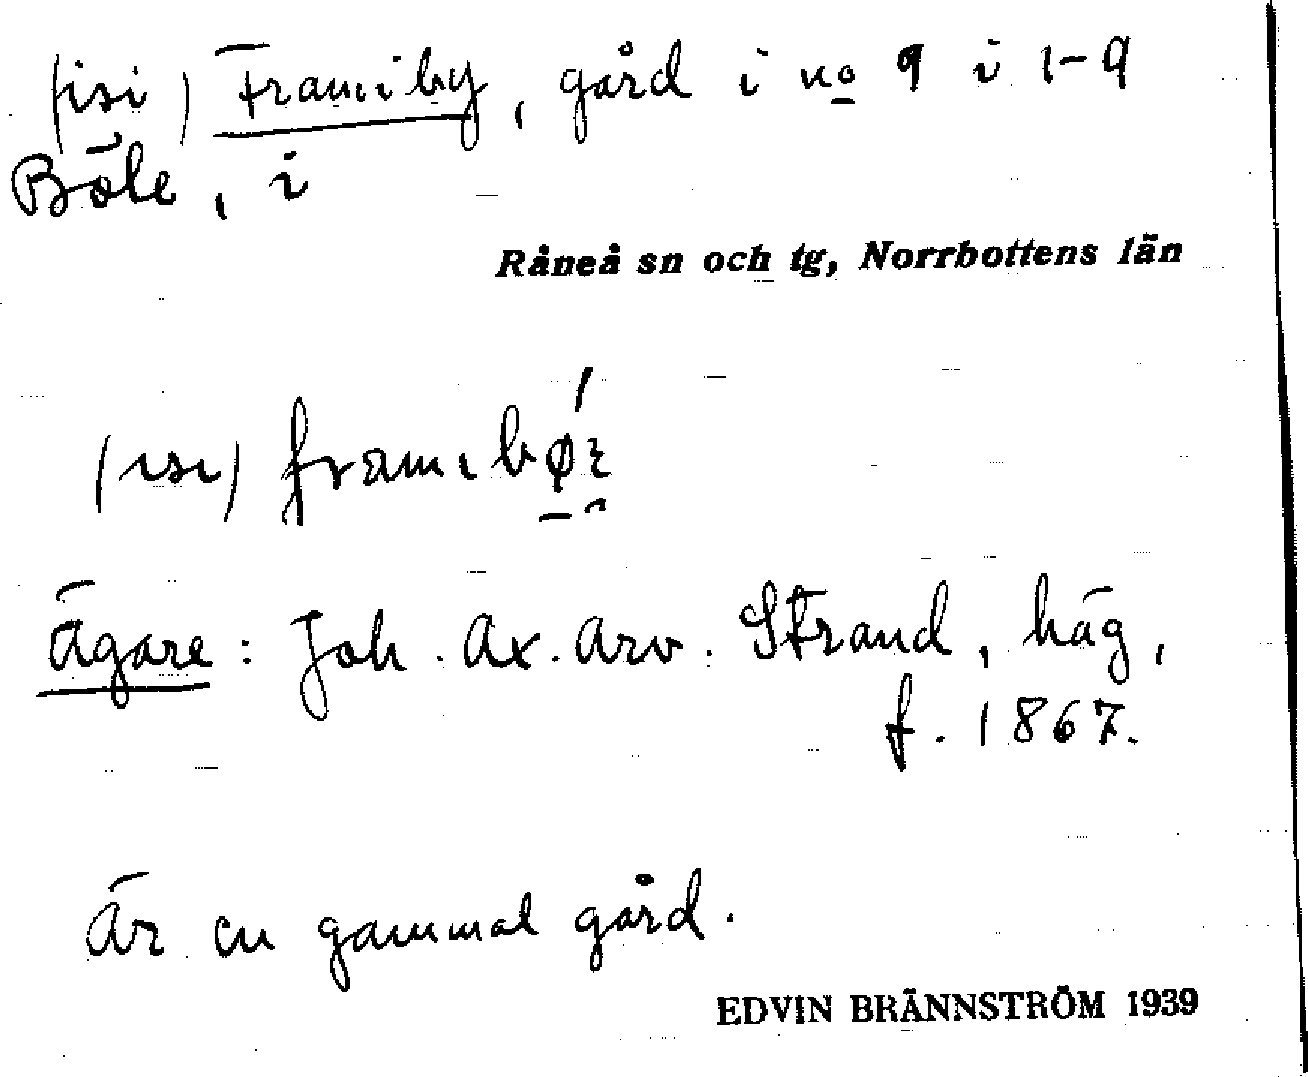 (isi) Frami by, gård i no 9 i 1-9
Böle, i
Råneå sn och tg, Norrbottens län
(isi) frami
Ägare: Joh. Ax. Arv. Strand, häg,
f. 1867.
Är en gammal gård.
EDVIN BRÄNNSTRÖM 1939